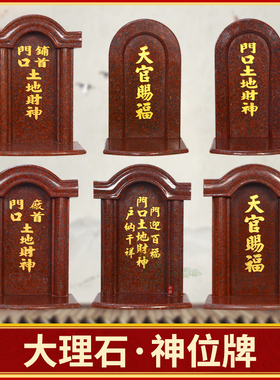 鋪首
門口
土地財神
天官賜福
門口土地財神
廠首
門口
土地財神
門迎百福
門口土地財神
戶納千祥
天官賜福
大理石·神位牌